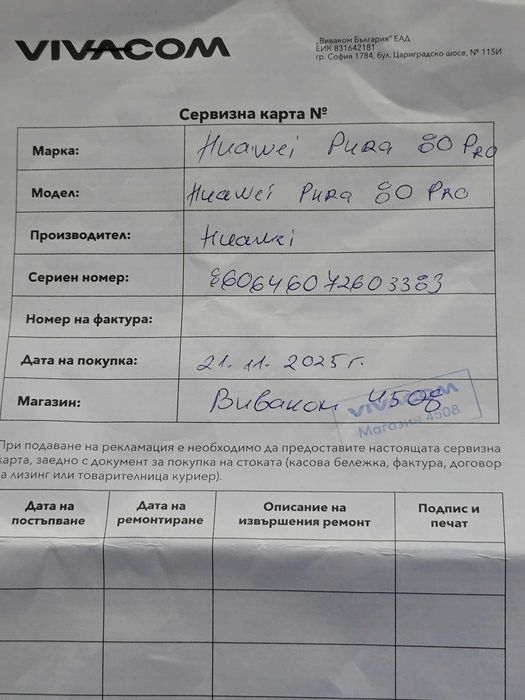 VIVACOM
„Виваком България“ ЕАД
ЕИК 831642181
гр. София 1784, бул. Цариградско шосе, № 115И
Сервизна карта №
Марка: Huawei Pura 80 Pro
Модел: Huawei Pura 80 Pro
Производител: Huawei
Сериен номер: 860646072603383
Номер на фактура:
Дата на покупка: 21.11.2025 г.
Магазин: Виваком 4508
VIVACOM
Магазин 4508
При подаване на рекламация е необходимо да предоставите настоящата сервизна
карта, заедно с документ за покупка на стоката (касова бележка, фактура, договор
за лизинг или товарителница куриер).
Дата на постъпване Дата на ремонтиране Описание на извършения ремонт Подпис и печат